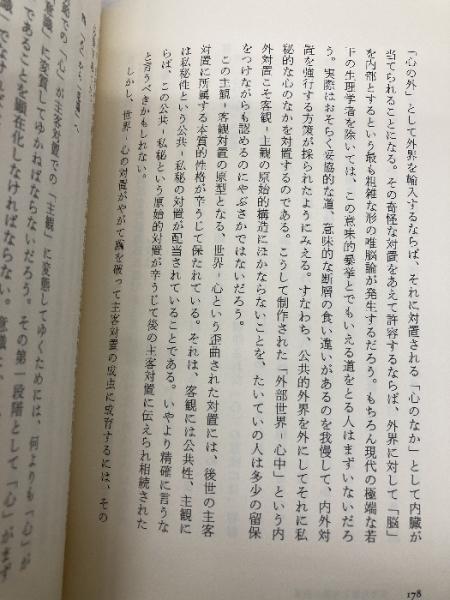 「心の外」として外界を輸入するならば、それに対置される「心のなか」として内臓が
当てられることになる。その奇怪な対置をあえて許容するならば、外界に対して「脳」
を内部とするという最も粗雑な形の唯脳論が発生するだろう。もちろん現代の極端な若
干の生理学者を除いては、この意味的暴挙とでもいえる道をとる人はまずいないだろ
う。実際はおそらく妥協的な道、意味的な断層の食い違いがあるのを我慢して、内外対
置を強行する方策が採られたようにみえる。すなわち、公共的外界を外にしてそれに私
秘的な心のなかを対置するのである。こうして制作された「外部世界-心中」という内
外対置こそ客観-主観の原始的構造にほかならないことを、たいていの人は多少の留保
をつけながらも認めるのにやぶさかではないだろう。
この主観-客観対置の原型となる、世界-心という歪曲された対置には、後世の主客
対置に所属する本質的性格が辛うじて保たれている。それは、客観には公共性、主観に
は私秘性という公共-私秘の対置が配当されていることである。いやより精確に言うな
らば、この公共-私秘という原始的対置が辛うじて後の主客対置に伝えられ相続された
と言うべきかもしれない。
しかし、世界-心の対置がやがて繭を破って主客対置の成虫に成育するには、その
での「心」が主客対置での「主観」に変態してゆくためには、何よりも「心」が
意識」に変質してゆかねばならないだろう。その第一段階として「心」がまず
であることを顕在化しなければならない。意識に
178